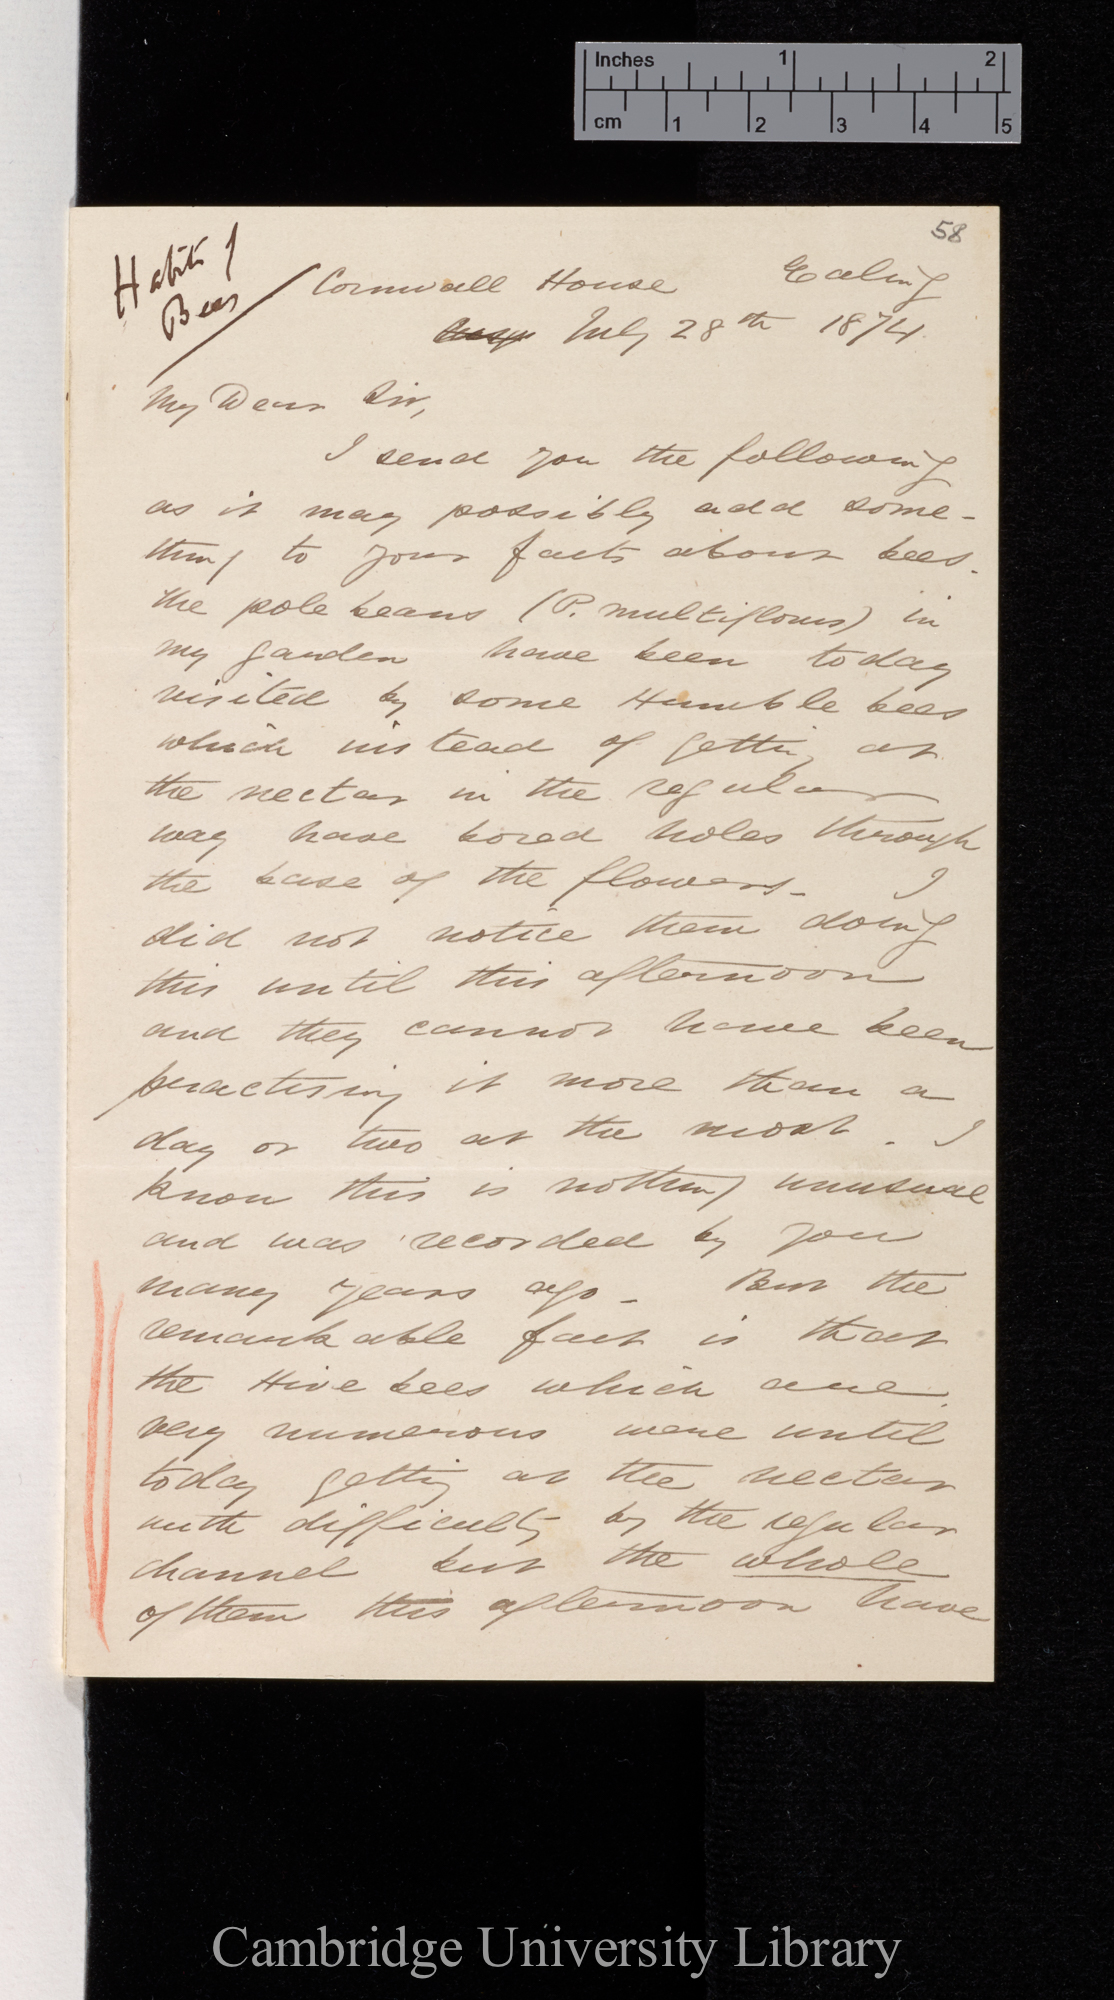 Inches 1 2
cm 1 2 3 4 5
58
Habits of
Bees
Cornwall House Ealing
July 28th 1874.
My Dear Sir,
I send you the following
as it may possibly add some-
thing to your facts about bees.
The pole beans (P. multiflorus) in
my garden have been today
visited by some Humble bees
which instead of getting at
the nectar in the regular
way have bored holes through
the base of the flowers. I
did not notice them doing
this until this afternoon
and they cannot have been
practising it more than a
day or two at the most. I
know this is nothing unusual
and was recorded by you
many years ago. But the
remarkable fact is that
the Hive bees which are
very numerous were until
today getting at the nectar
with difficulty by the regular
channel but the whole
of them this afternoon have
Cambridge University Library